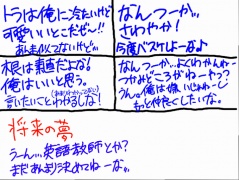 トラは俺に冷たいけど
可愛いいとこだぜ〜!!
あんま似てないけどw
なんつーか、
さわやか!
今度バスケしよーな♪
根は素直だよな!
俺はいいと思う。
言いたいことわかるしな!
なんつーか、よくわかんねー
つかみどころがねーやつ?
うん。俺は嫌いじゃねーし
もっと仲良くしたいな。
将来の夢
うーん…英語教師とか?
まだあんまり決めてねーな。